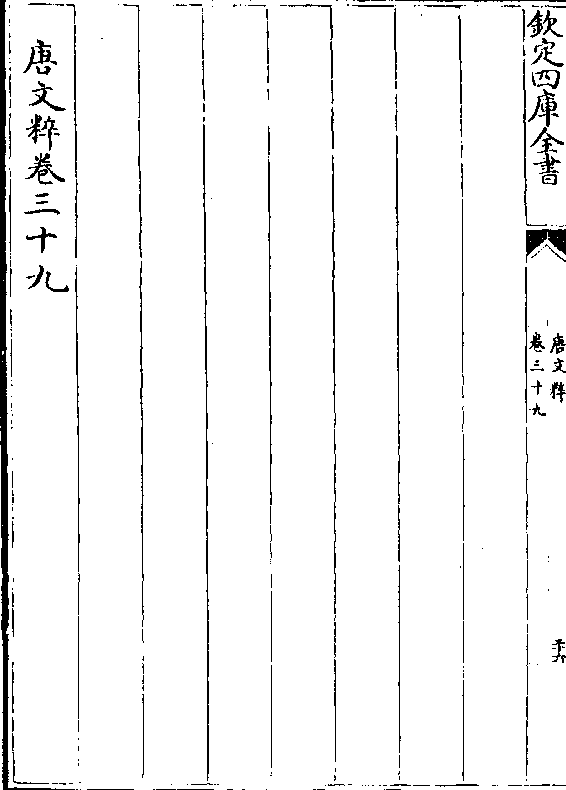 欽定四庫全書
唐文粹
卷三十九
唐文粹卷三十九